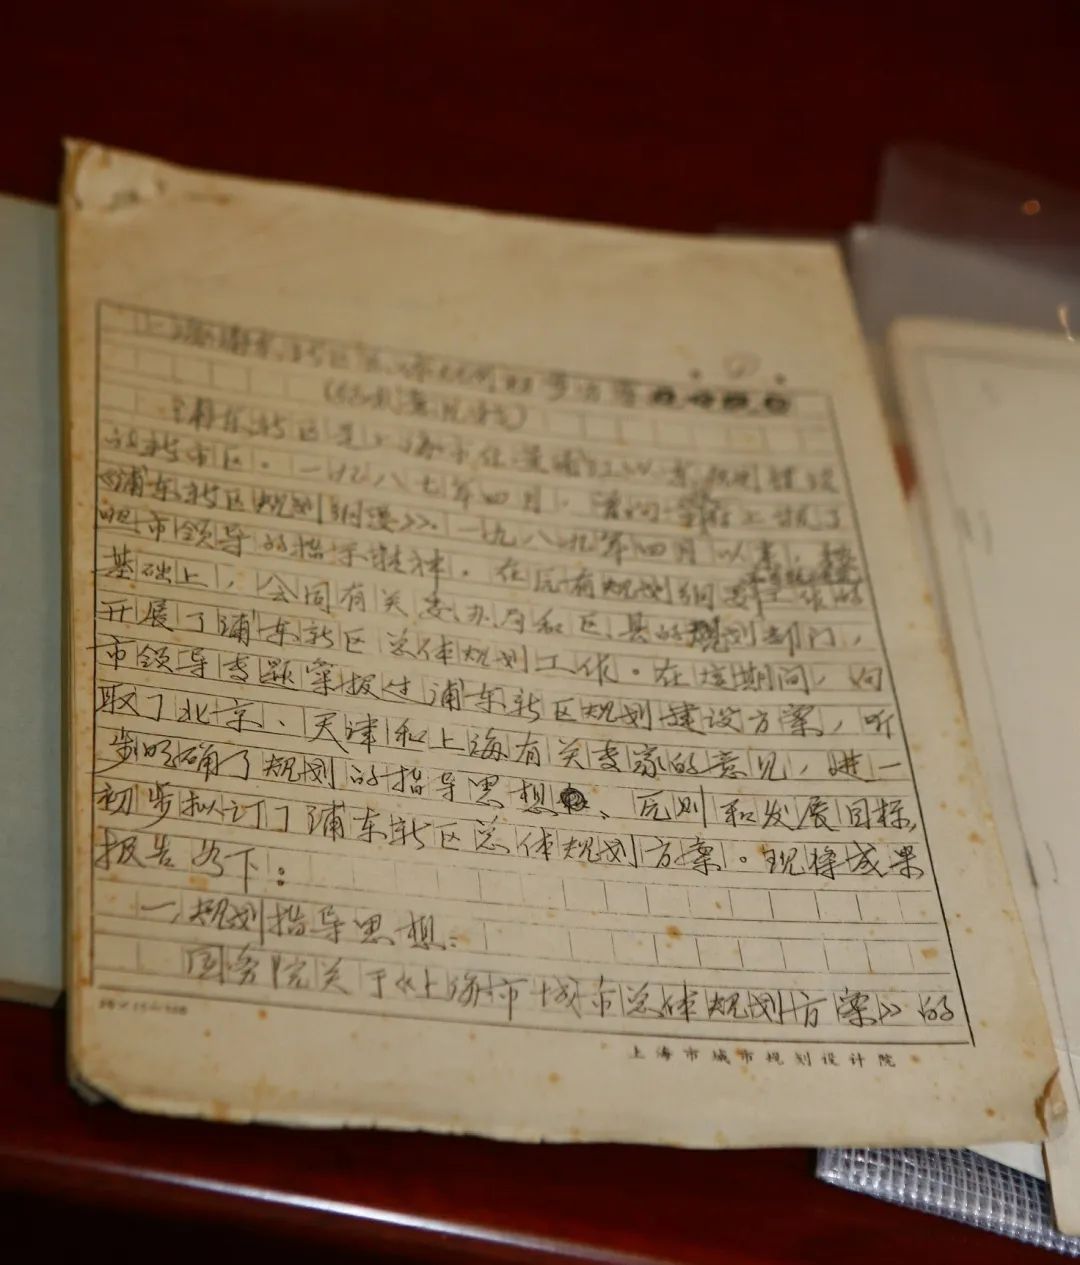 上海浦东新区总体规划初步方案
(征求意见稿)
浦东新区是上海市在黄浦江以东规划建设
的新市区。一九八七年四月,曾向市府上报了
《浦东新区规划纲要》。一九八九年四月以来,
市领导的指示精神,在原有规划纲要
基础上,会同有关委、办、局和区、县的规划部门,
开展了浦东新区总体规划工作。在这期间,向
市领导专题汇报过浦东新区规划建设方案,听
取了北京、天津和上海有关专家的意见,进一
步明确了规划的指导思想、原则和发展目标,
初步拟订了浦东新区总体规划方案。现将成果
报告如下:
一、规划指导思想:
国务院关于《上海市城市总体规划方案》的
上海市城市规划设计院